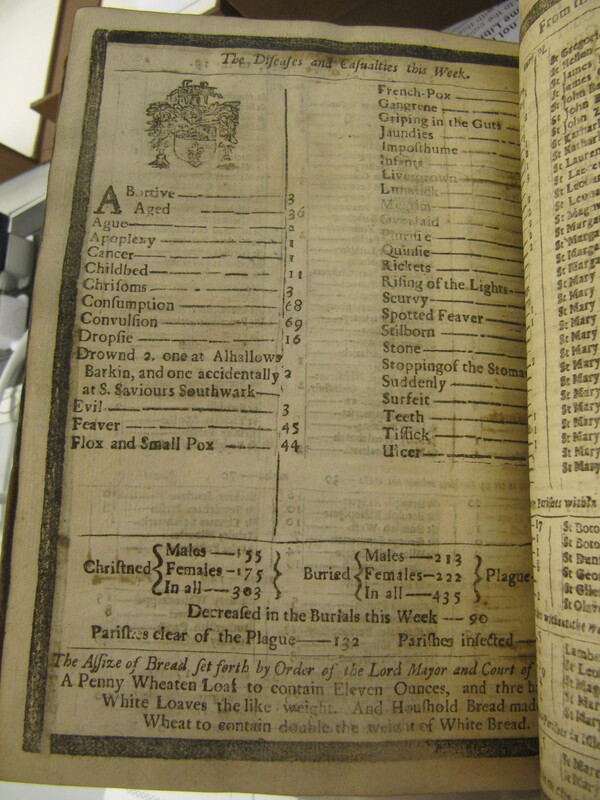 The Diseases and Casualties this Week.
ABortive 3
Aged 36
Ague 2
Apoplexy 1
Cancer 1
Childbed 11
Chrisoms 3
Consumption 68
Convulsion 69
Dropsie 16
Drownd 2, one at Alhallows
Barkin, and one accidentally 2
at S. Saviours Southwark
Evil 3
Feaver 45
Flox and Small Pox 44
French-Pox
Gangrene
Griping in the Guts
Jaundies
Imposthume
Infants
Livergrown
Lunatick
Overlaid
Plurisie
Quinsie
Rickets
Rising of the Lights
Scurvy
Spotted Feaver
Stilborn
Stone
Stopping of the Stoma
Suddenly
Surfeit
Teeth
Tissick
Ulcer
Christned { Males 155 Females 175 In all 303 }
Buried { Males 213 Females 222 In all 435 } Plague
Decreased in the Burials this Week 90
Parishes clear of the Plague 132 Parishes infected
The Assize of Bread set forth by Order of the Lord Mayor and Court of
A Penny Wheaten Loaf to contain Eleven Ounces, and thre
White Loaves the like weight. And Houshold Bread mad
Wheat to contain double the weight of White Bread.
From th
St James
St John
St John
St Kathar
St Lauren
St Leon
St Marga
St Marga
St Marga
St Mary
St Mary
St Mary
St Mary
St Mary
St Mary
St Mary
St Mary
St Mary
St Mary
Parishes within
17 St Boto
St Boto
St Dun
St Geor
St Giles
St Olave
Lambe
St Leo
St Mag
St Mar
St Mary